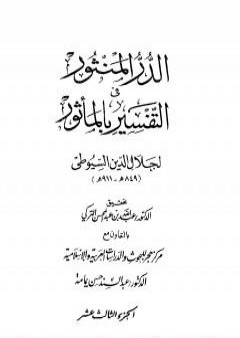 الدر المنثور
في
التفسير بالمأثور
لجلال الدين السيوطي
(٨٤٩ هـ - ٩١١ هـ)
تحقيق
الدكتور عبد الله بن عبد المحسن التركي
بالتعاون مع
مركز هجر للبحوث والدراسات العربية والإسلامية
الدكتور عبد السند حسن يمامة
الجزء الثالث عشر